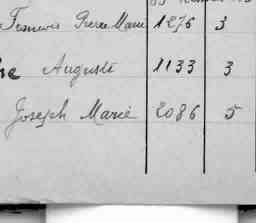 Pierre Marie 1276 3
Auguste 1133 3
Joseph Marie 2086 5